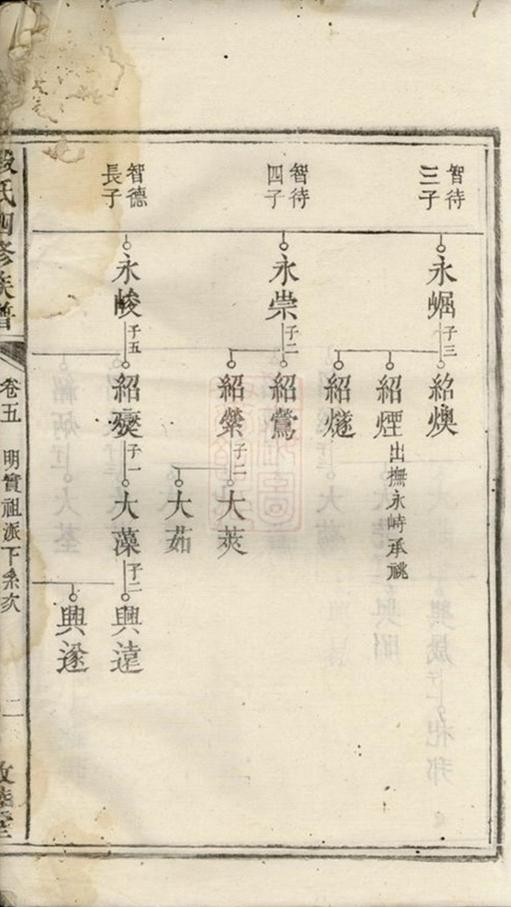 智待
三子
永崛
子三
紹燠
紹煙
出撫永峙承祧
紹燧
智待
四子
永祟
子二
紹鶯
紹縈
子二
大莢
大茹
智德
長子
永峻
子五
紹燮
子一
大藻
子二
興遠
興遂
氏四修族譜
卷五
明實祖派下系次
二